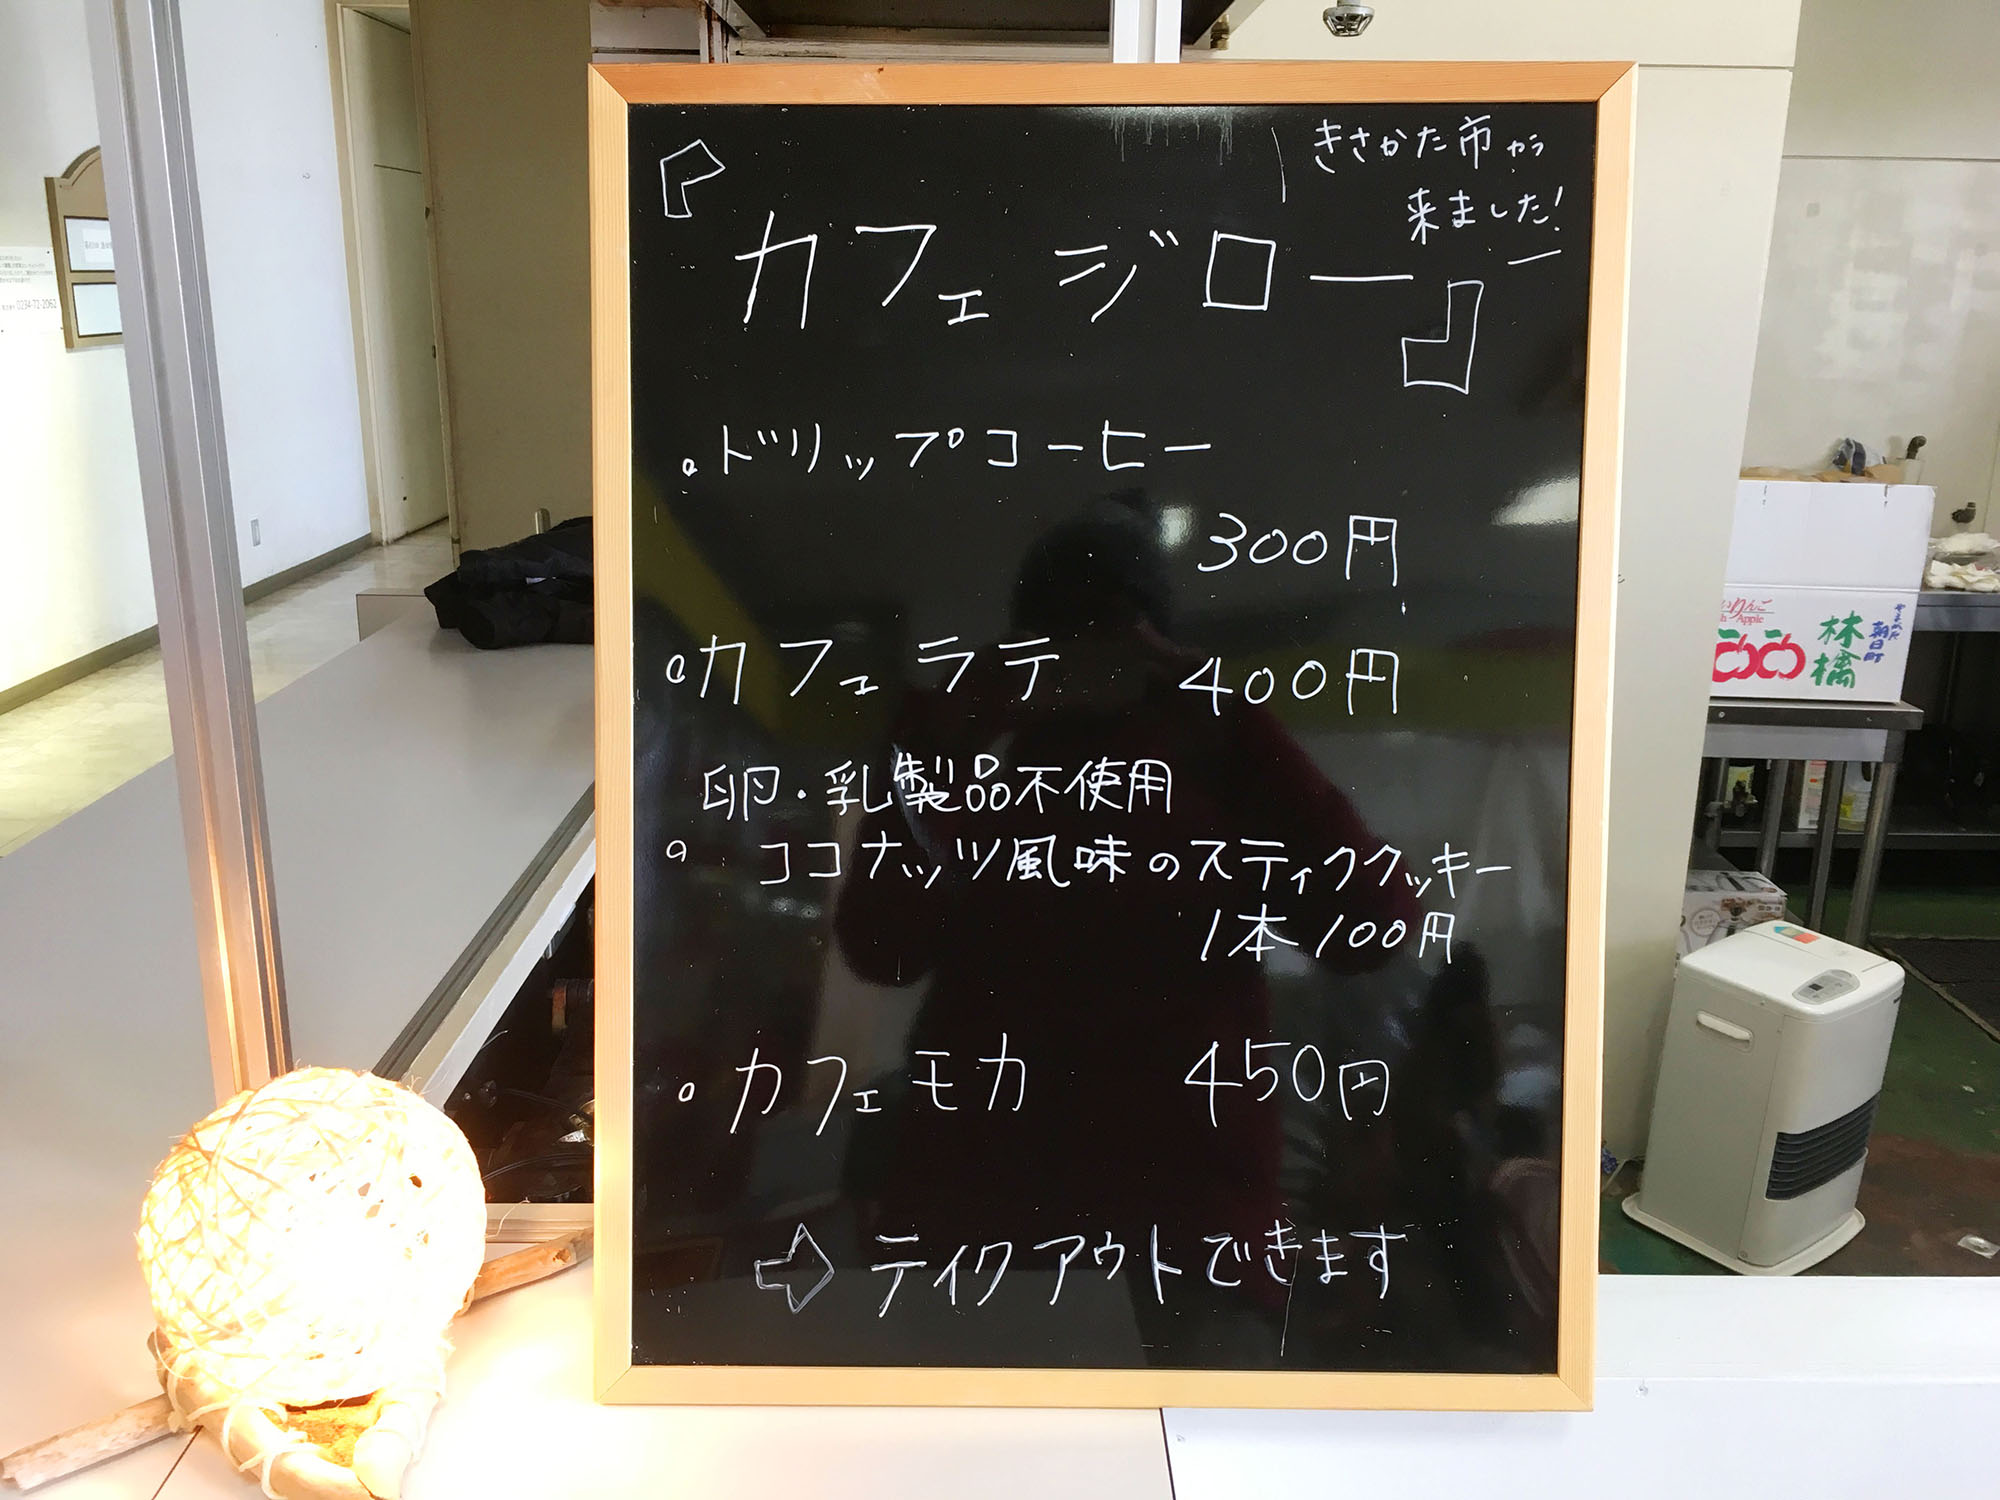 きさかた市から
来ました!
『カフェジロー』
・ドリップコーヒー
300円
・カフェラテ 400円
卵・乳製品不使用
・ココナッツ風味のスティッククッキー
1本100円
・カフェモカ 450円
⇨ テイクアウトできます
りんご
Apple
林檎
朝日町
0234-72-2063